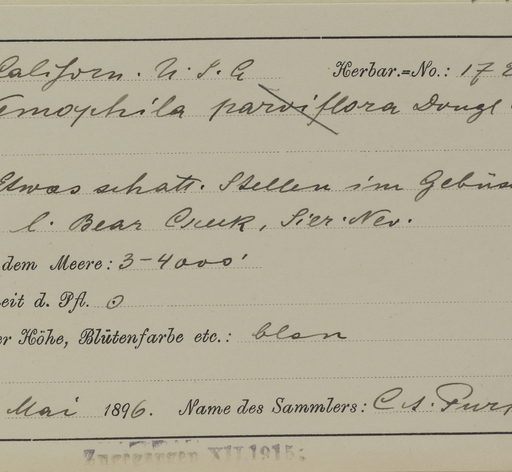 Californ. U. S. A Herbar.=No.: 17
emophila parviflora Dougl
Etwas schatt. Stellen im Gebüs
b. Bear Creek, Sier. Nev.
dem Meere: 3-4000'
eit d. Pfl. ⊙
er Höhe, Blütenfarbe etc.: blau
Mai 1896. Name des Sammlers: C. A. Purp
Zugegangen XII.1915: